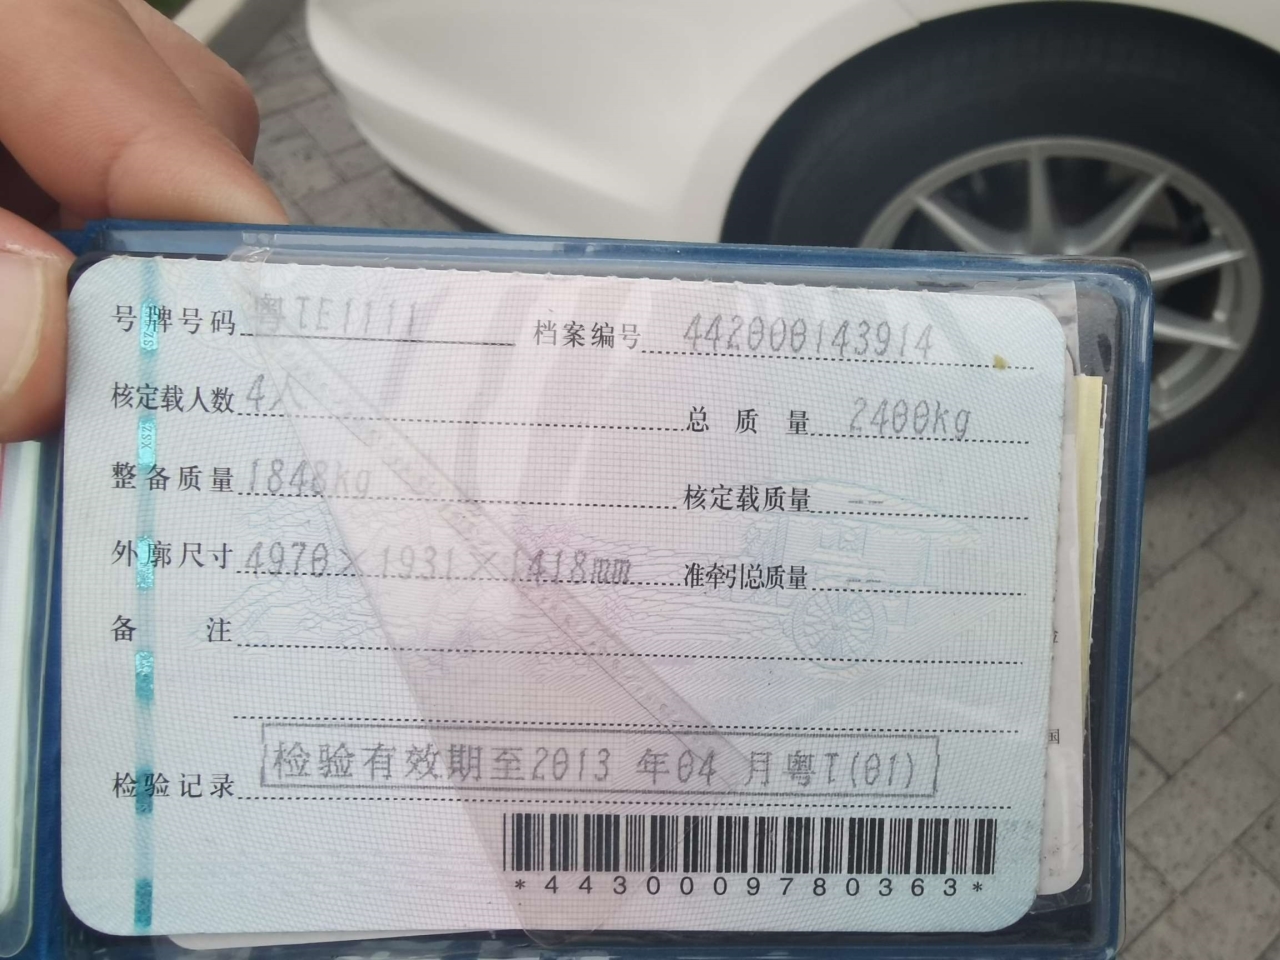 号牌号码 粤TE1111 档案编号 442000143914
核定载人数 4人 总质量 2400kg
整备质量 1848kg 核定载质量 --
外廓尺寸 4970×1931×1418mm 准牵引总质量 --
备注
检验记录 检验有效期至2013年04月粤T(01)
*4430009780363*